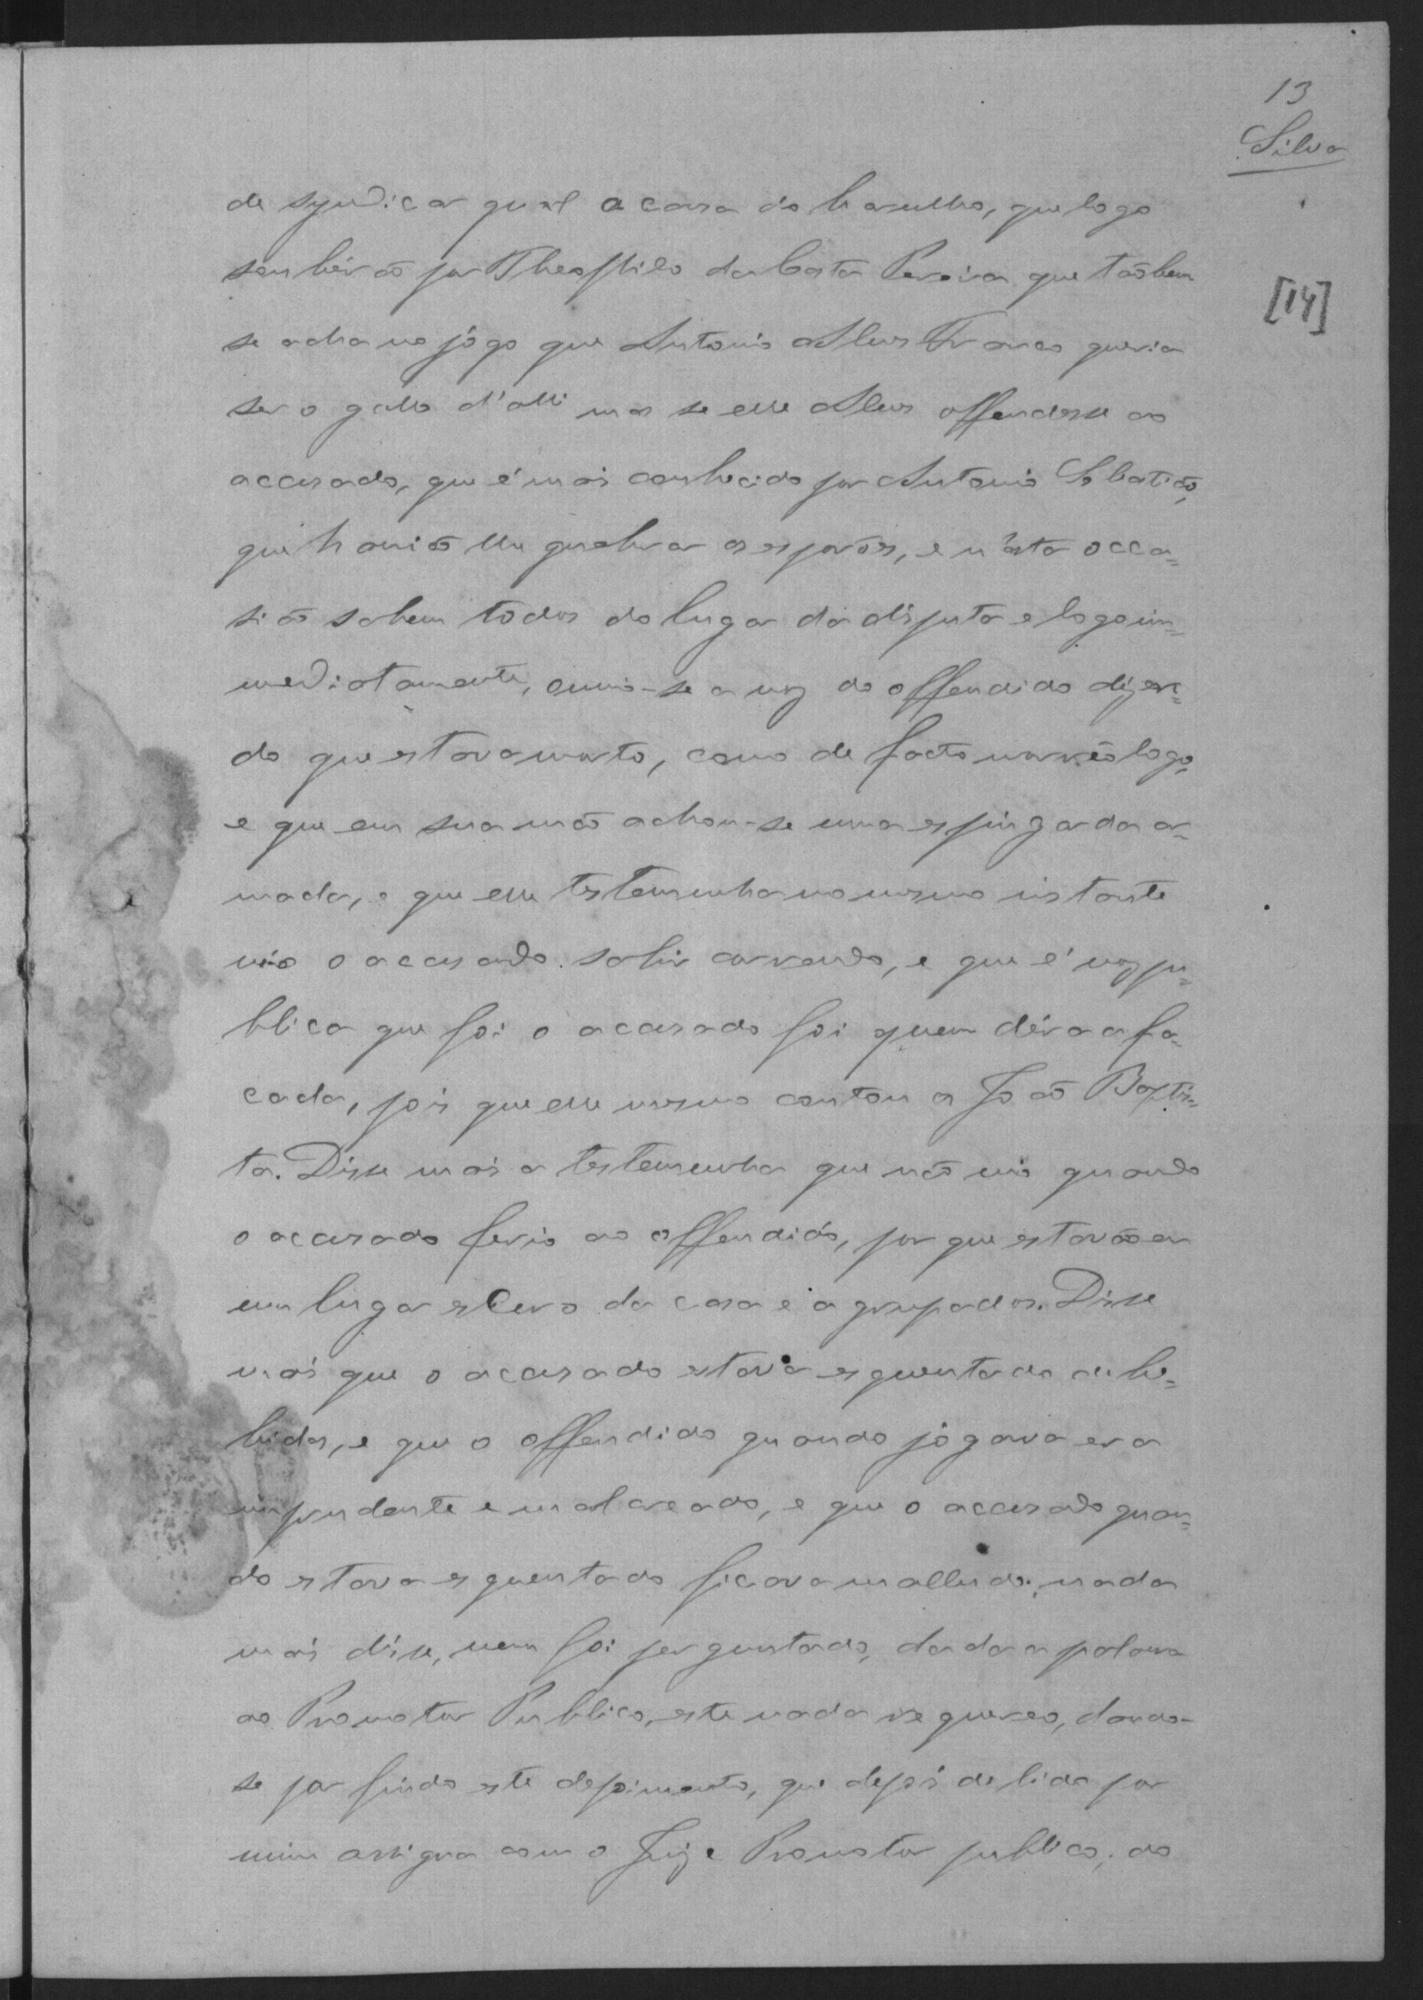 13
Silva
[14]
de syndicar qual a cauza do barulho, que logo
souberão por Theophilo da Costa Pereira que tãobem
se achano jôgo que Antonio Alves Franco queria
ser o gallo d'alli mas se elle Alves offendesse ao
accusado, que é mais conhecido por Antonio Sebatião,
que havião lhe quebrar os esporões, e n'esta occa=
sião sahem todos do lugar da disputa e logo im=
mediatamente, ouvio-se a voz do offendido dizen=
do que estava morto, como de facto morrêo logo,
e que em sua mão achou-se uma espingarda ar=
mada, e que elle testemunha no mesmo instante
vio o acusado sahir correndo, e que é voz pu=
blica que foi o acusado foi quem déra a fa=
cada, pois que elle mesmo contou a João Baptis=
ta. Disse mais a testemunha que não vio quando
o acusado ferio ao offendido, por que estavão em
um lugar escuro da casa e agrupados. Disse
mais que o acusado estava esquentado de be=
bidas, e que o offendido quando jógava era
imprudente e malcreado, e que o accusado quan=
do estava esquentado ficava malludo; nada
mais disse, nem foi perguntado, dada a palavra
ao Promotor Publico, este nada requereo, dando-
se por findo este depoimento, que depois de lido por
mim assigna com o Juiz e Promotor publico; do